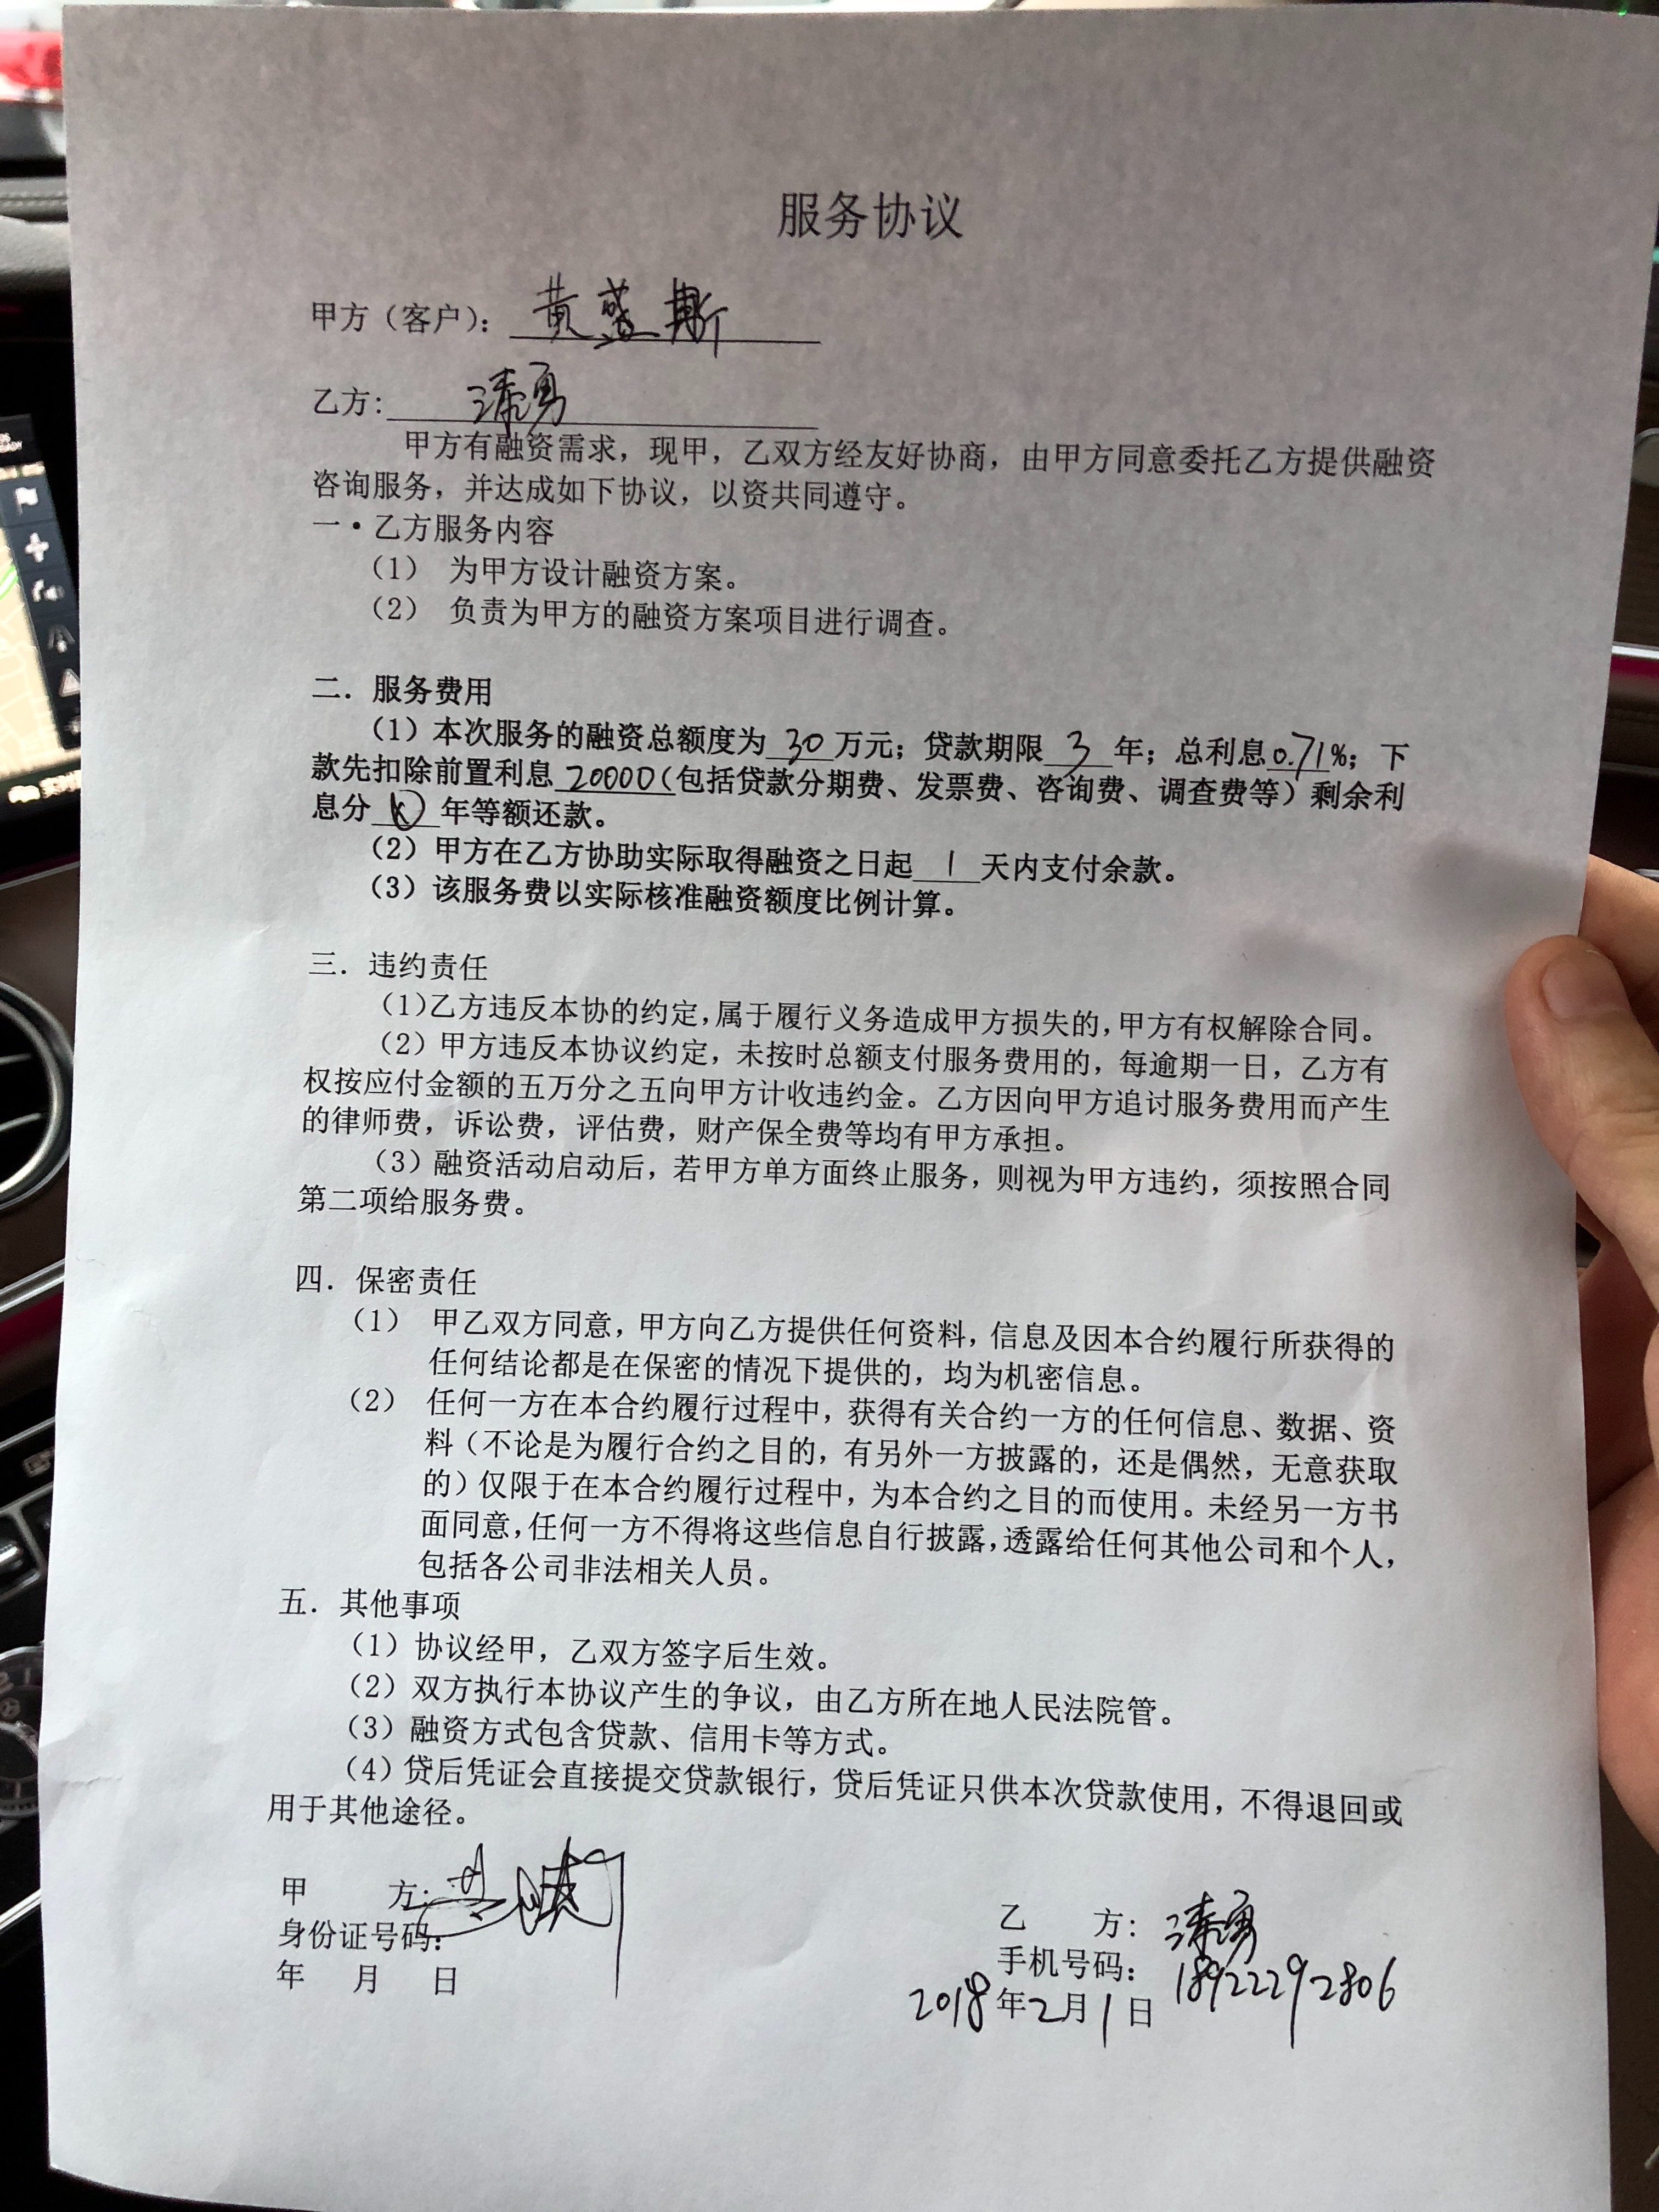 服务协议
甲方（客户）：黄盛斯
乙方：勇
甲方有融资需求，现甲，乙双方经友好协商，由甲方同意委托乙方提供融资
咨询服务，并达成如下协议，以资共同遵守。
一·乙方服务内容
（1） 为甲方设计融资方案。
（2） 负责为甲方的融资方案项目进行调查。
二．服务费用
（1）本次服务的融资总额度为 30 万元；贷款期限 3 年；总利息0.71%；下
款先扣除前置利息 20000（包括贷款分期费、发票费、咨询费、调查费等）剩余利
息分 年等额还款。
（2）甲方在乙方协助实际取得融资之日起 1 天内支付余款。
（3）该服务费以实际核准融资额度比例计算。
三．违约责任
（1）乙方违反本协的约定，属于履行义务造成甲方损失的，甲方有权解除合同。
（2）甲方违反本协议约定，未按时总额支付服务费用的，每逾期一日，乙方有
权按应付金额的五万分之五向甲方计收违约金。乙方因向甲方追讨服务费用而产生
的律师费，诉讼费，评估费，财产保全费等均有甲方承担。
（3）融资活动启动后，若甲方单方面终止服务，则视为甲方违约，须按照合同
第二项给服务费。
四．保密责任
（1） 甲乙双方同意，甲方向乙方提供任何资料，信息及因本合约履行所获得的
任何结论都是在保密的情况下提供的，均为机密信息。
（2） 任何一方在本合约履行过程中，获得有关合约一方的任何信息、数据、资
料（不论是为履行合约之目的，有另外一方披露的，还是偶然，无意获取
的）仅限于在本合约履行过程中，为本合约之目的而使用。未经另一方书
面同意，任何一方不得将这些信息自行披露，透露给任何其他公司和个人，
包括各公司非法相关人员。
五．其他事项
（1）协议经甲，乙双方签字后生效。
（2）双方执行本协议产生的争议，由乙方所在地人民法院管。
（3）融资方式包含贷款、信用卡等方式。
（4）贷后凭证会直接提交贷款银行，贷后凭证只供本次贷款使用，不得退回或
用于其他途径。
甲 方：
身份证号码：
年 月 日
乙 方：勇
手机号码：18922292806
2018年2月1日